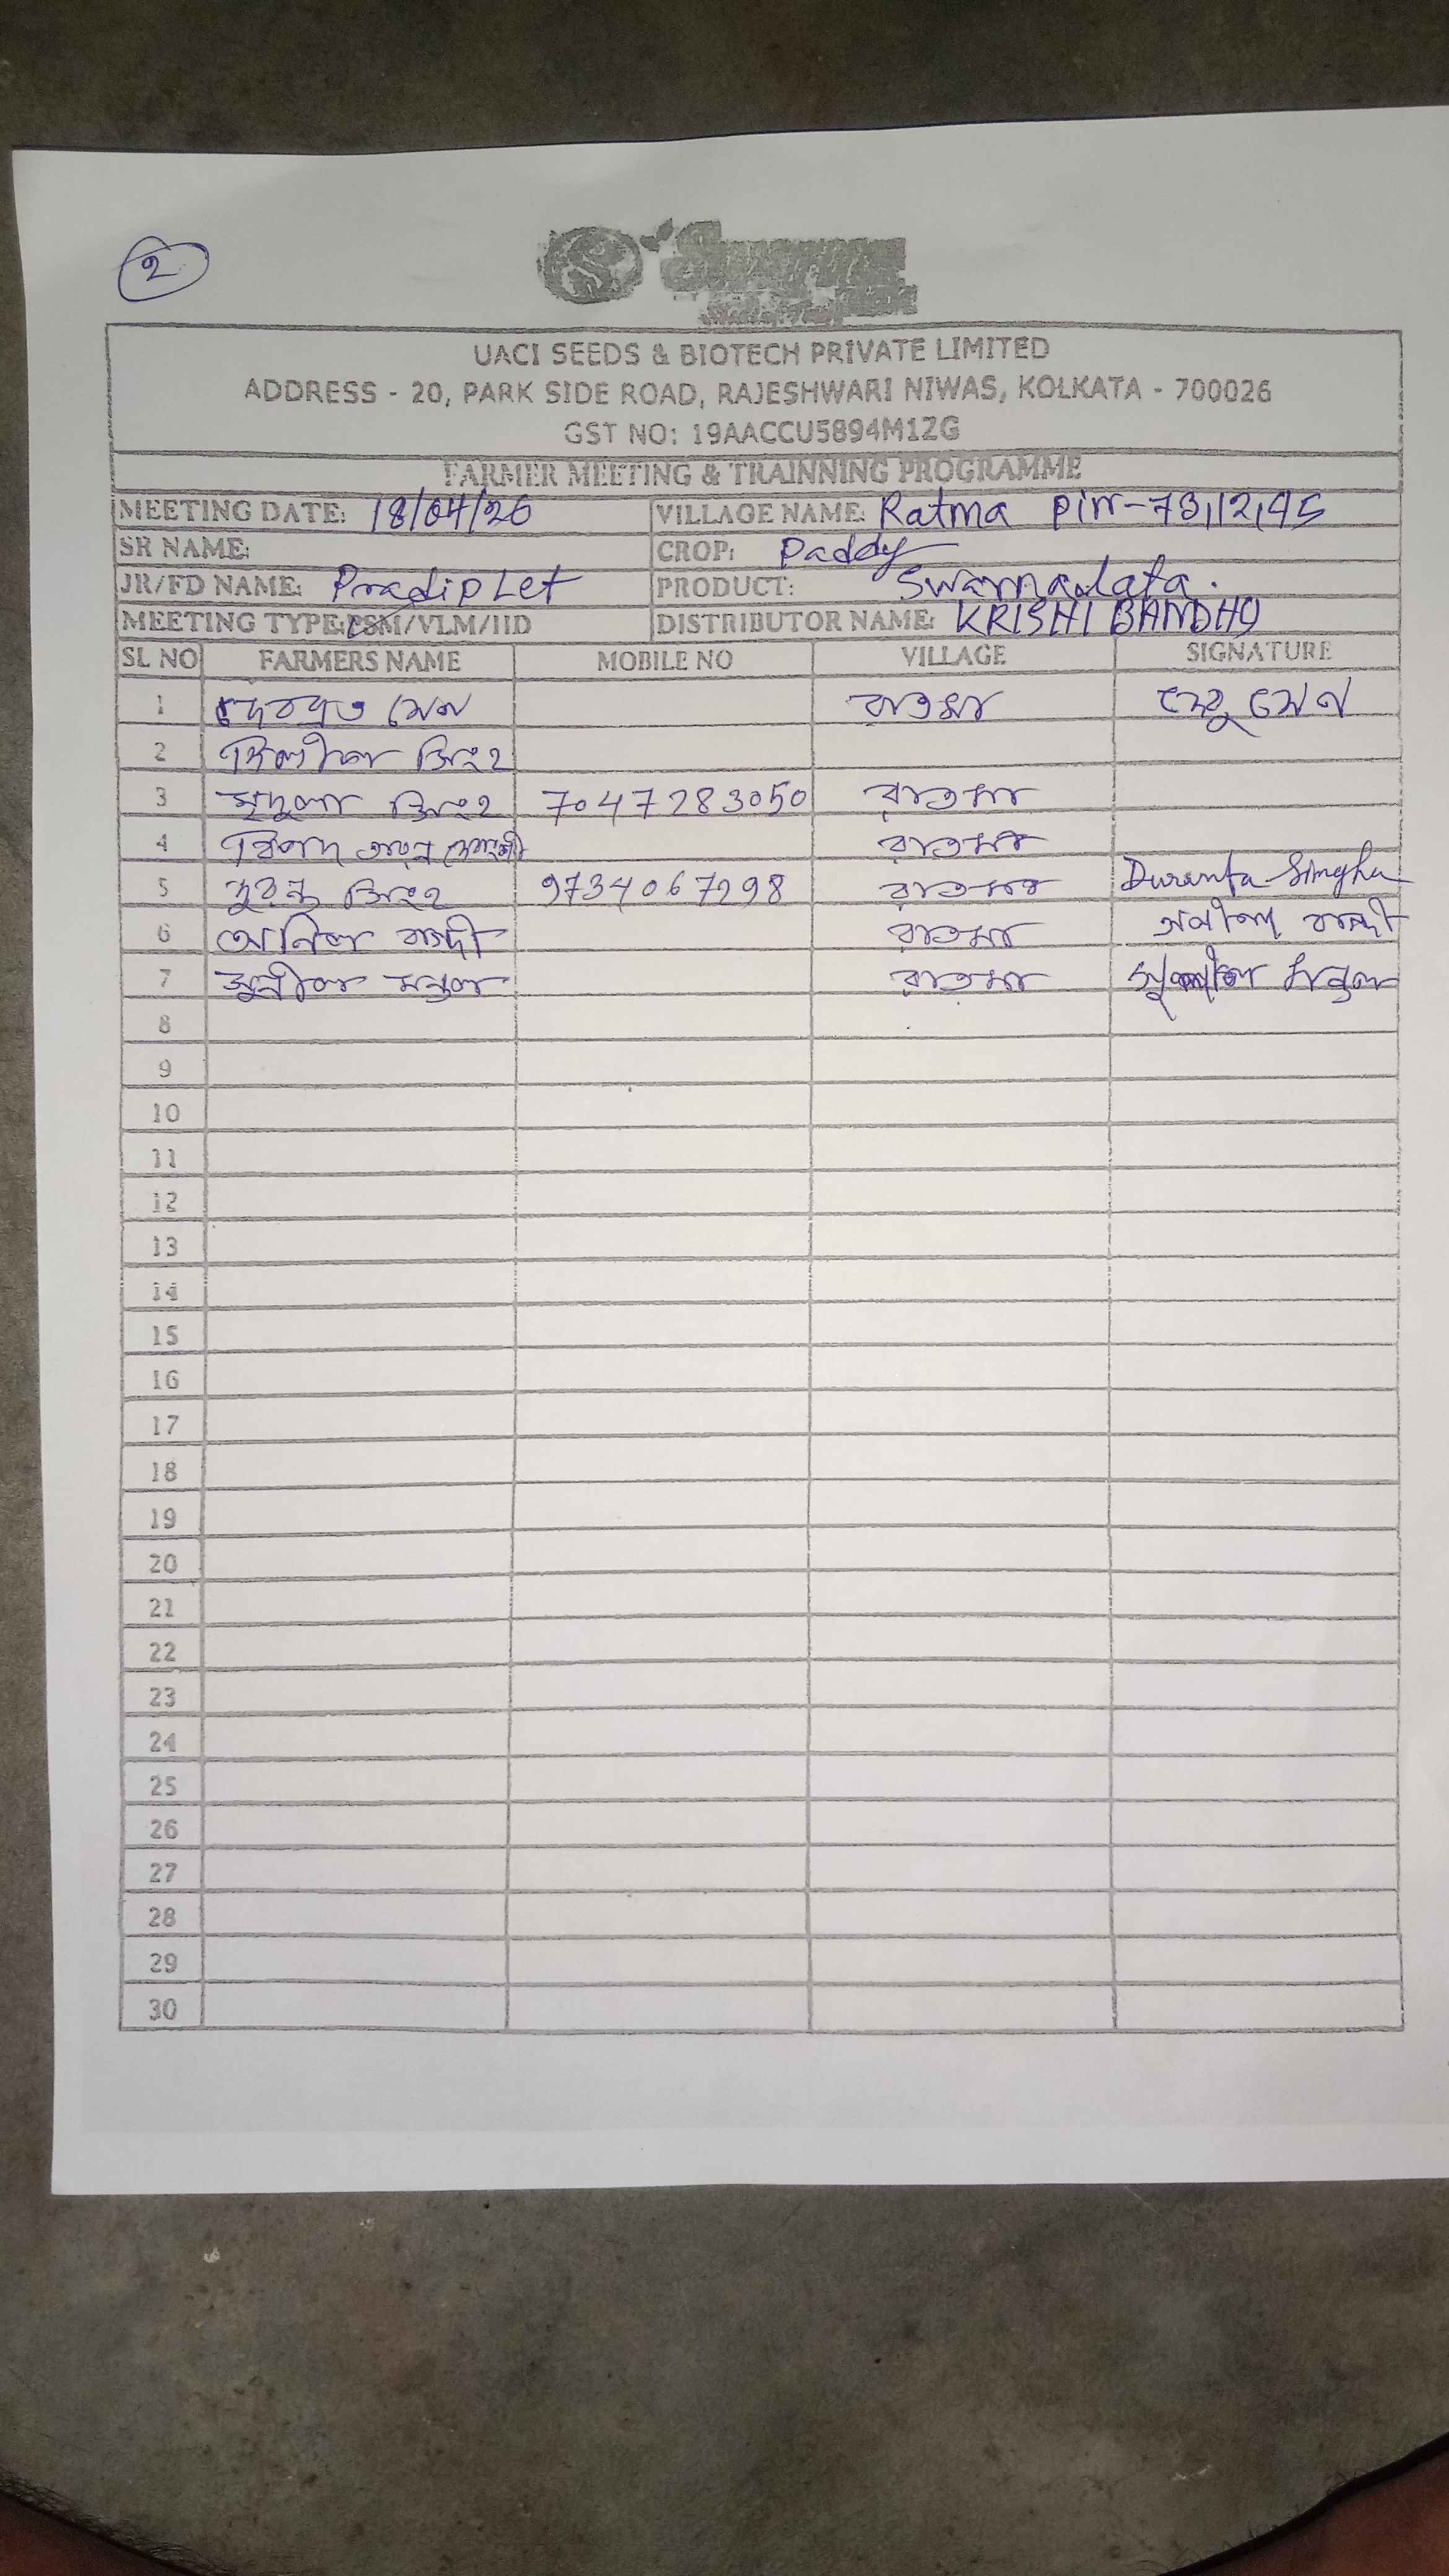 2
UACI SEEDS & BIOTECH PRIVATE LIMITED
ADDRESS - 20, PARK SIDE ROAD, RAJESHWARI NIWAS, KOLKATA - 700026
GST NO: 19AACCU5894M1ZG
FARMER MEETING & TRAINNING PROGRAMME
MEETING DATE: 18/04/26 VILLAGE NAME: Ratma Pin-73,12,45
SR NAME: CROP: Paddy
JR/FD NAME: Pradip Let PRODUCT: Swarnalata.
MEETING TYPE: PSM/VLM/IID DISTRIBUTOR NAME: KRISHI BANDHU
SL NO FARMERS NAME MOBILE NO VILLAGE SIGNATURE
1 দেবব্রত সেন রাতমা দেবু সেন
2 দিলীপ সিংহ
3 মৃদুলা সিংহ 7047283050 রাতমা
4 রাতমা
5 দুরন্ত সিংহ 9734067298 রাতমা Duranta Singha
6 অনিল বাগ্দী রাতমা
7 সুনীল মন্ডল রাতমা সুনীল মন্ডল
8
9
10
11
12
13
14
15
16
17
18
19
20
21
22
23
24
25
26
27
28
29
30